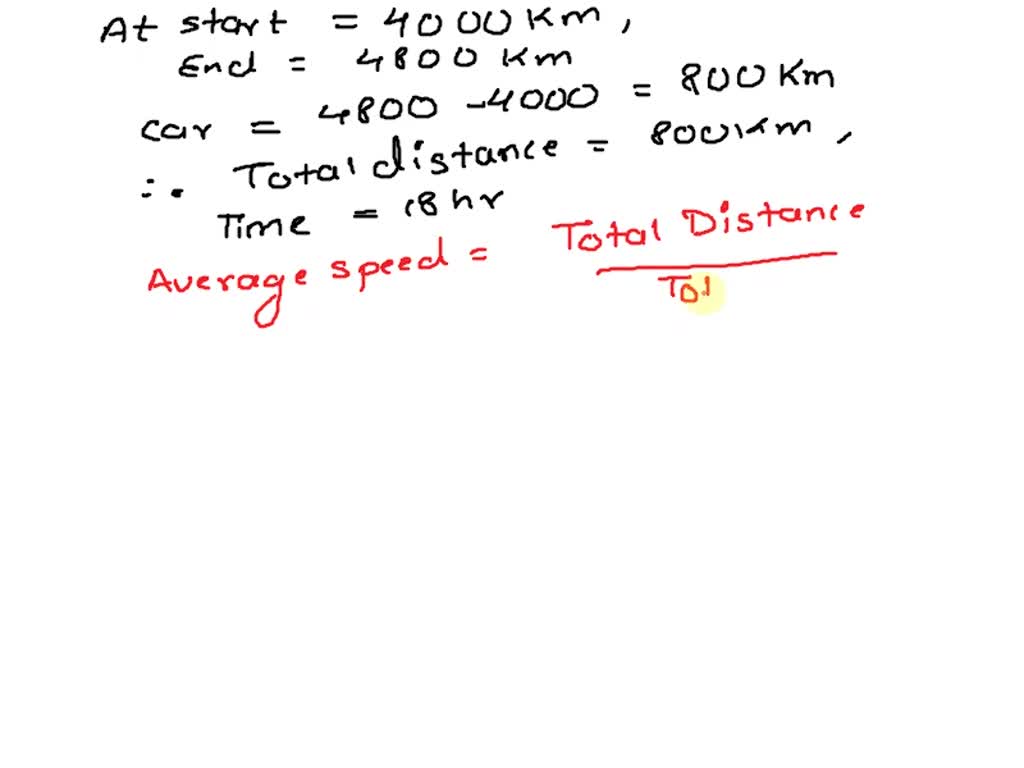 At start = 4000 Km,
End = 4800 Km
car = 4800 - 4000 = 800 Km
∴ Total distance = 800 Km,
Time = 18 hr
Average speed = Total Distance
Tot